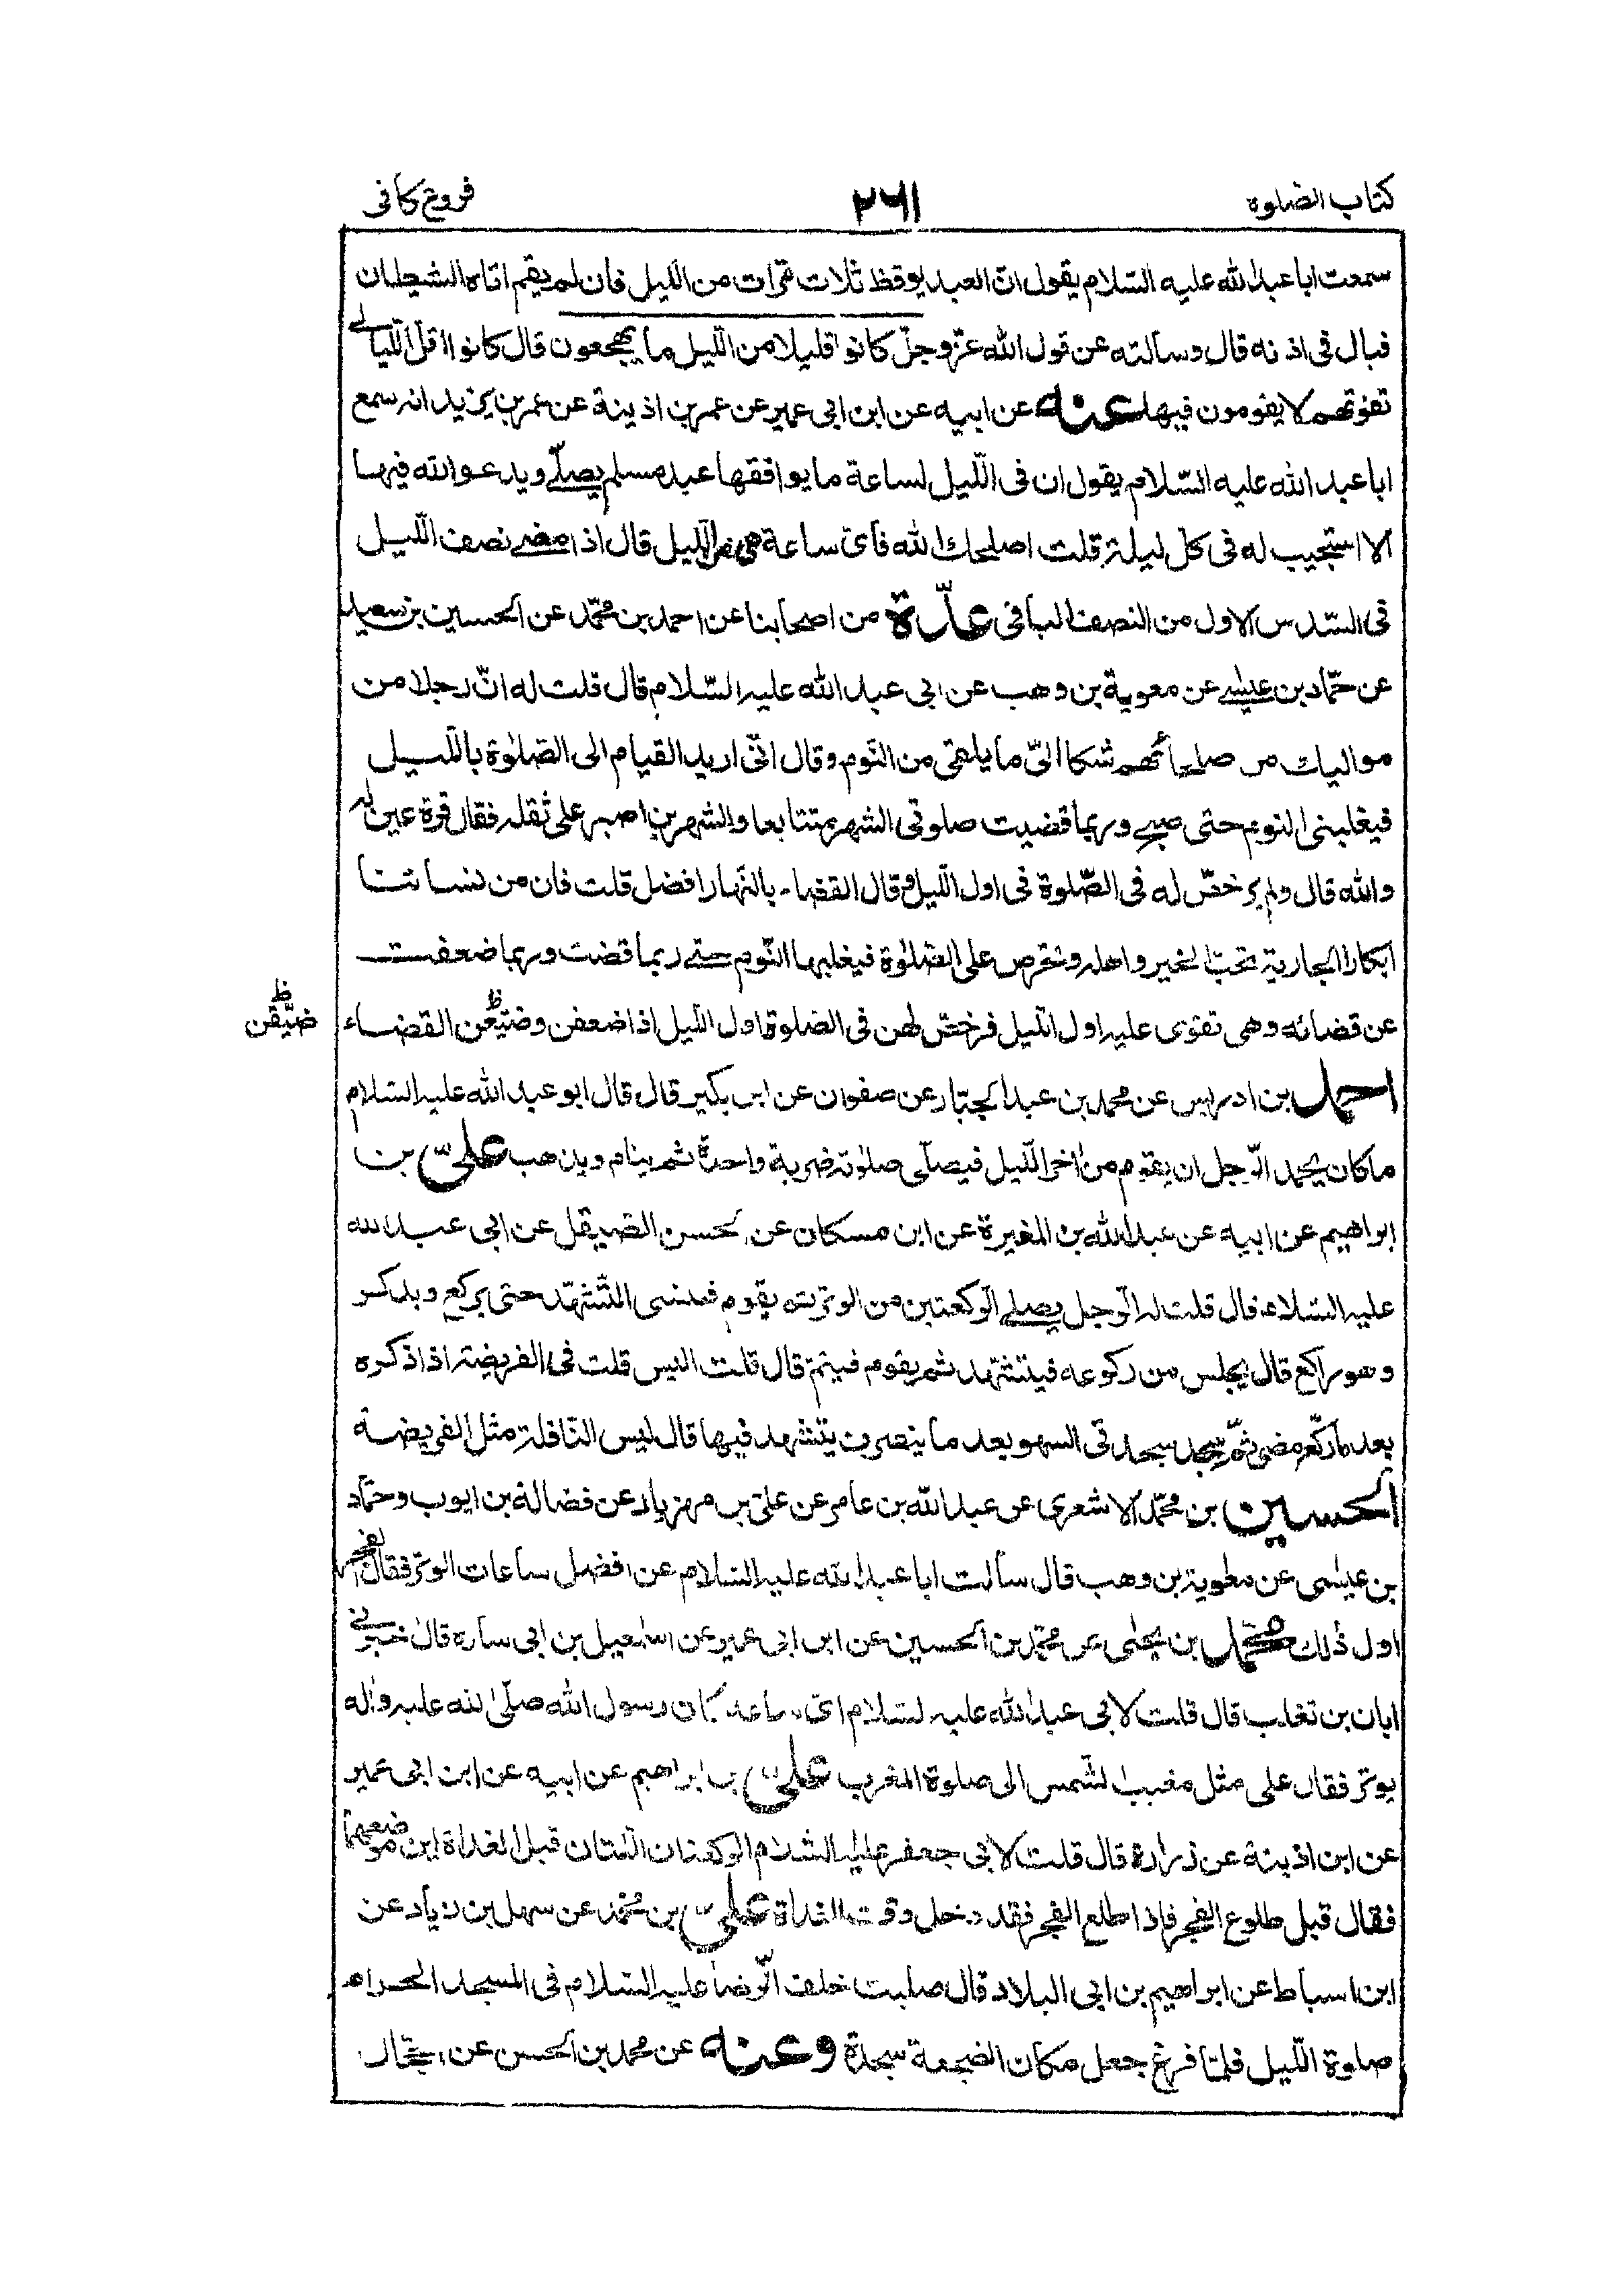 كتاب الصلوة
٢٦١
فروع كافى
سمعت ابا عبد الله عليه السّلام يقول انّ العبد يوقظ ثلاث مرات من اللّيل فان لم يقم اتاه الشيطان
فبال فى اذنه قال وسألته عن قول الله عزّوجلّ كانوا قليلا من اللّيل ما يهجعون قال كانوا اقل اللّيالى
تفوتهم لا يقومون فيها عنه عن ابيه عن ابن ابى عمير عن عمر بن اذينة عن عمر بن يزيد انه سمع
ابا عبد الله عليه السّلام يقول ان فى اللّيل لساعة ما يوافقها عبد مسلم يصلّى ويدعو الله فيها
الا استجيب له فى كلّ ليلة قلت اصلحك الله فأىّ ساعة هى من اللّيل قال اذا مضى نصف اللّيل
فى السّدس الاول من النصف الباقى عدّة من اصحابنا عن احمد بن محمّد عن الحسين بن سعيد
عن حمّاد بن عيسى عن معوية بن وهب عن ابى عبد الله عليه السّلام قال قلت له انّ رجلا من
مواليك من صلحائهم شكا الىّ ما يلقى من النّوم وقال انّى اريد القيام الى الصّلوة باللّيل
فيغلبنى النوم حتى اصبح وربما قضيت صلوتى الشهر متتابعا والشهرين اصبر على ثقله فقال قرة عين له
والله قال ولم يرخصّ له فى الصّلوة فى اول اللّيل وقال القضاء بالنّهار افضل قلت فان من نسائنا
ابكارا الجارية تحبّ الخير واهله وتحرص على الصّلوة فيغلبها النّوم حتى ربما قضت وربما ضعفت
عن قضائه وهى تقوى عليه اول اللّيل فرخصّ لهن فى الصلوة اول اللّيل اذا ضعفن وضيّعن القضاء
ظ
ضيّقن
احمد بن ادريس عن محمد بن عبد الجبّار عن صفوان عن ابن بكير قال قال ابو عبد الله عليه السّلام
ما كان يحمد الرّجل ان يقوم من اخر اللّيل فيصلّى صلوته ضربة واحدة ثم ينام ويذهب علىّ بن
ابراهيم عن ابيه عن عبد الله بن المغيرة عن ابن مسكان عن الحسن الصّيقل عن ابى عبد الله
عليه السّلام قال قلت له الرّجل يصلى الرّكعتين من الوتر ثم يقوم فينسى التّشهّد حتى يركع ويذكر
وهو راكع قال يجلس من ركوعه فيتشهّد ثم يقوم فيتمّ قال قلت اليس قلت فى الفريضة اذا ذكره
بعد ما ركع مضى ثمّ سجد سجدتى السهو بعد ما ينصرف يتشهد فيها قال ليس النّافلة مثل الفريضة
الحسين بن محمّد الاشعرى عن عبد الله بن عامر عن علىّ بن مهزيار عن فضالة بن ايوب وحمّاد
بن عيسى عن معوية بن وهب قال سألت ابا عبد الله عليه السّلام عن افضل ساعات الوتر فقال الفجر
اول ذلك محمّد بن يحيى عن محمّد بن الحسين عن ابن ابى عمير عن اسمعيل بن ابى ساره قال خبرنى
ابان بن تغلب قال قلت لابى عبد الله عليه السّلام اىّ ساعة كان رسول الله صلّى الله عليه واله
يوتر فقال على مثل مغيب الشمس الى صلوة المغرب علىّ بن ابراهيم عن ابيه عن ابن ابى عمير
عن ابن اذينة عن زرارة قال قلت لابى جعفر عليه السّلام الركعتان اللتان قبل الغداة اين موضعهما
فقال قبل طلوع الفجر فاذا طلع الفجر فقد دخل وقت الغداة علىّ بن محمّد عن سهل بن زياد عن
ابن اسباط عن ابراهيم بن ابى البلاد قال صليت خلف الرّضا عليه السّلام فى المسجد الحرام
صلوة اللّيل فلمّا فرغ جعل مكان الضجعة سجدة وعنه عن محمد بن الحسن عن الحجّال